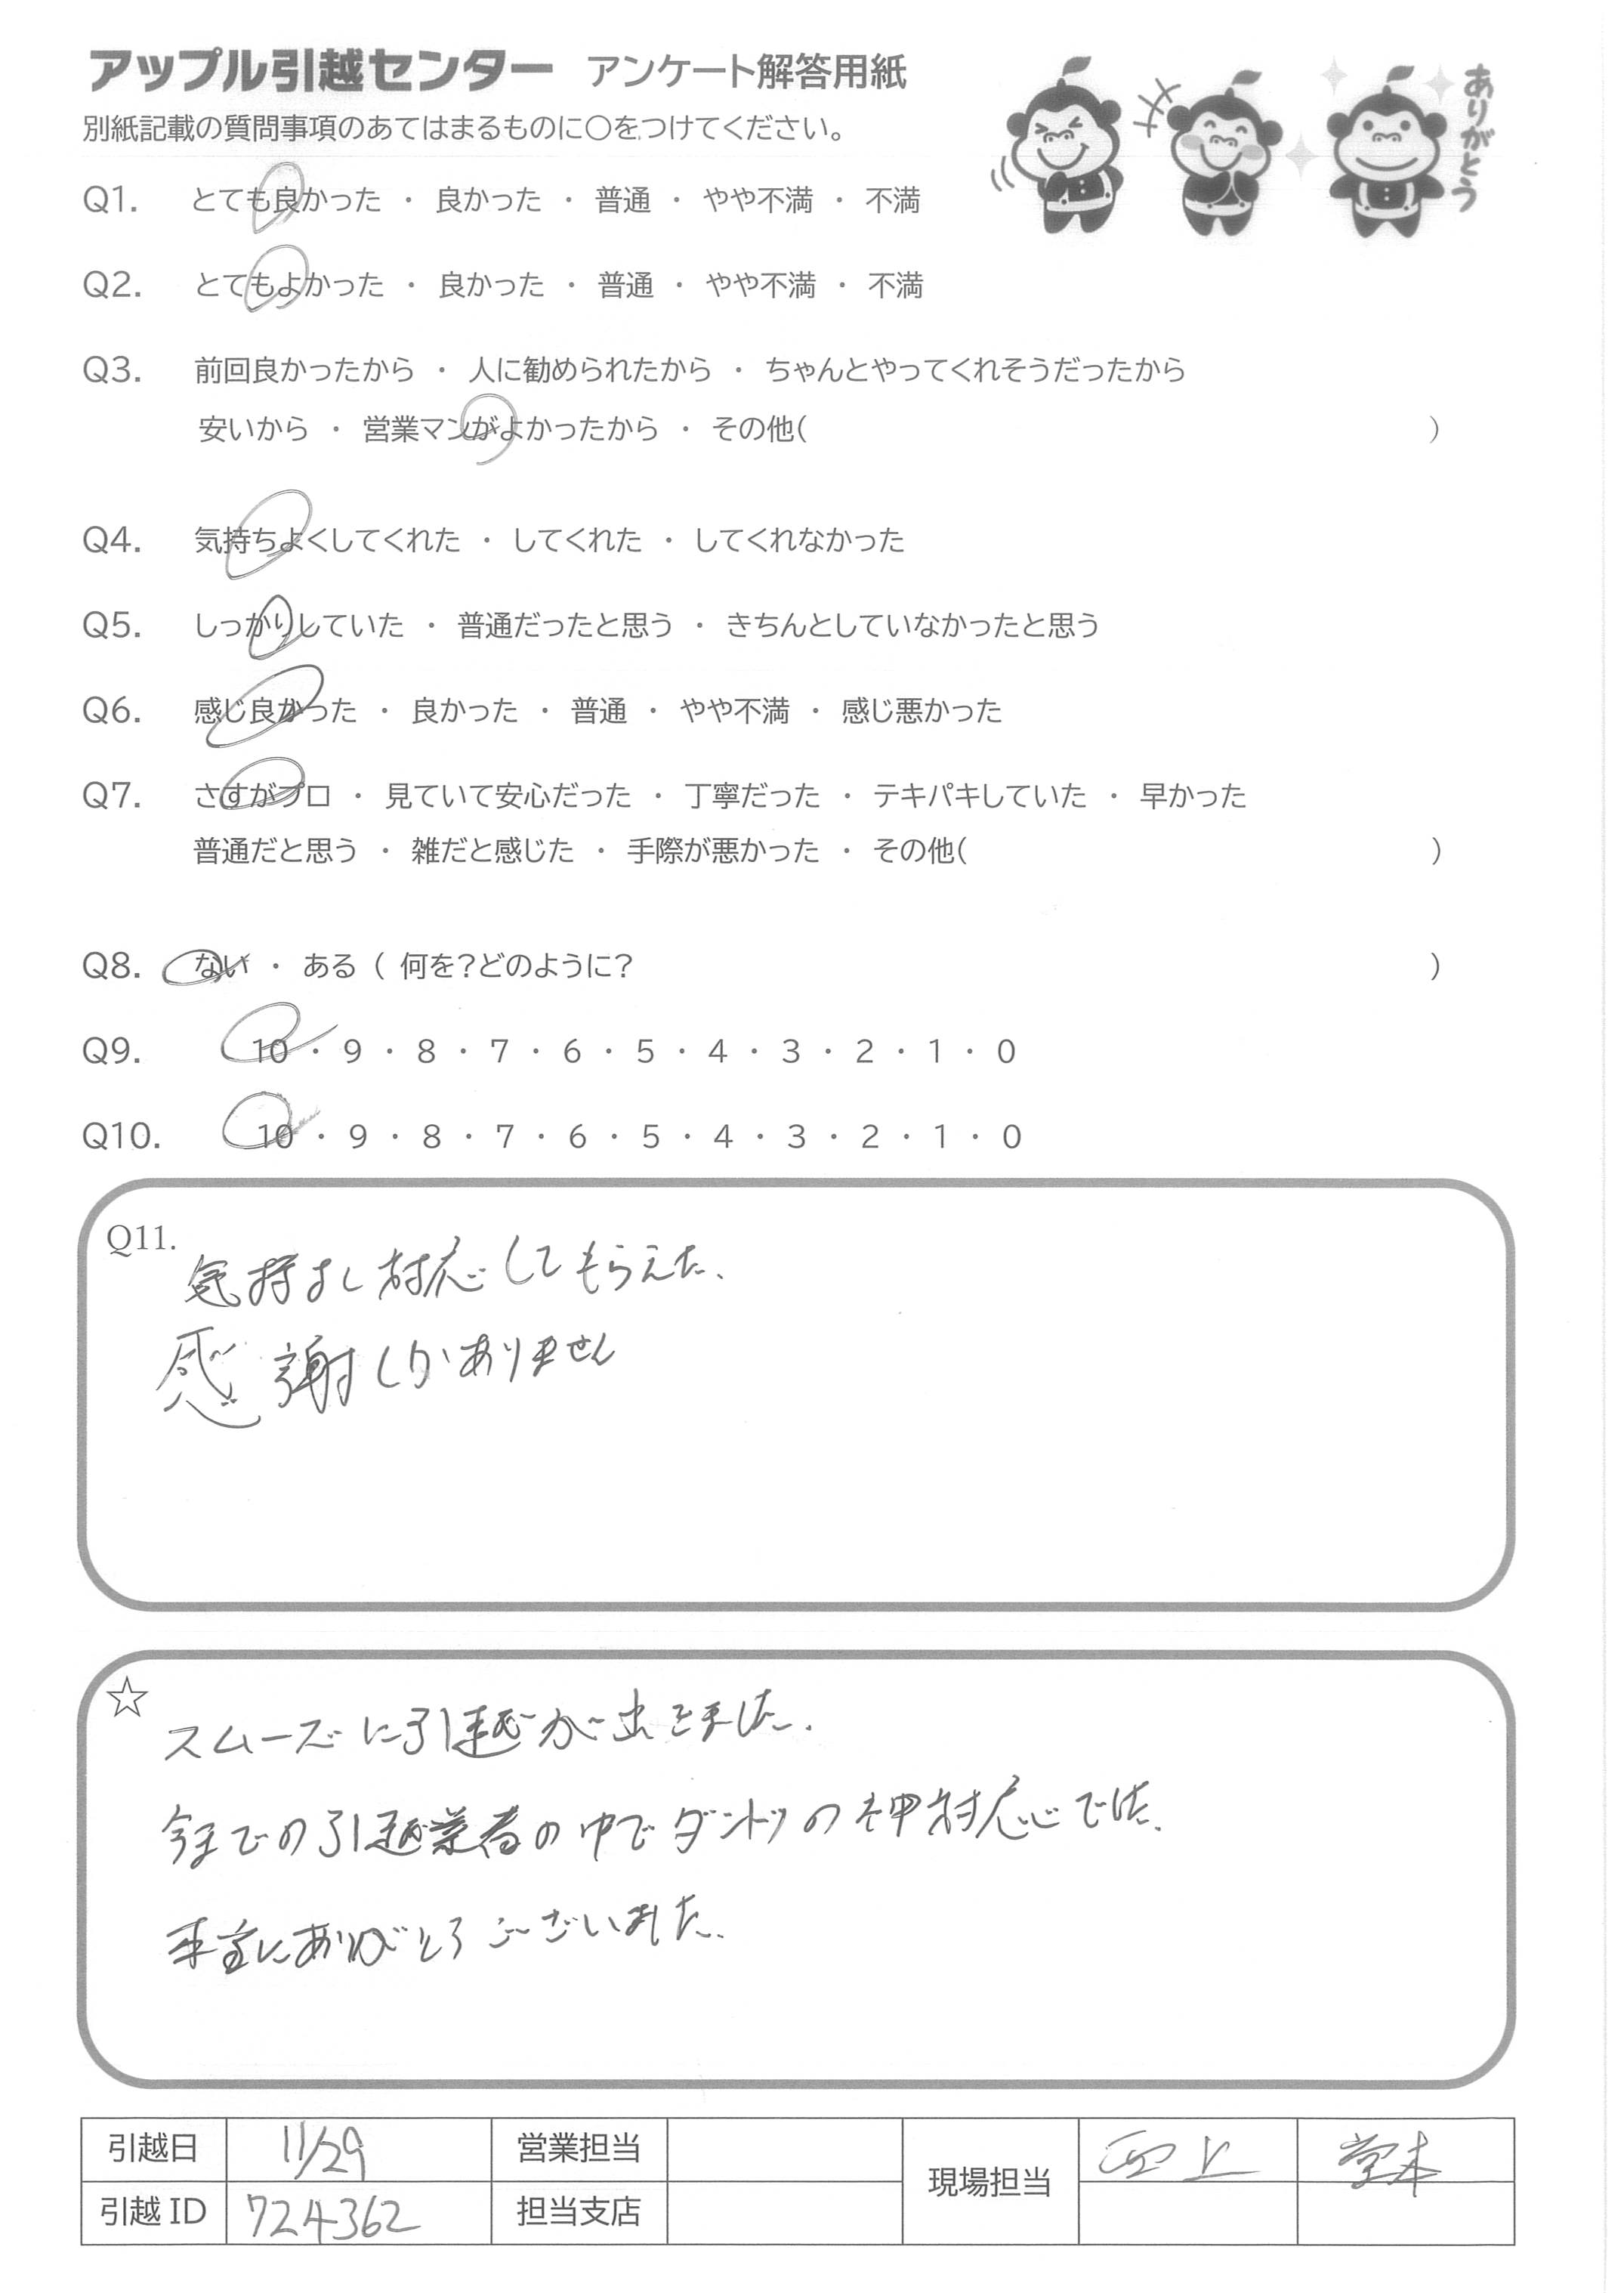 アップル引越センター アンケート解答用紙
ありがとう
別紙記載の質問事項のあてはまるものに○をつけてください。
Q1. とても良かった ・ 良かった ・ 普通 ・ やや不満 ・ 不満
Q2. とてもよかった ・ 良かった ・ 普通 ・ やや不満 ・ 不満
Q3. 前回良かったから ・ 人に勧められたから ・ ちゃんとやってくれそうだったから
安いから ・ 営業マンがよかったから ・ その他( )
Q4. 気持ちよくしてくれた ・ してくれた ・ してくれなかった
Q5. しっかりしていた ・ 普通だったと思う ・ きちんとしていなかったと思う
Q6. 感じ良かった ・ 良かった ・ 普通 ・ やや不満 ・ 感じ悪かった
Q7. さすがプロ ・ 見ていて安心だった ・ 丁寧だった ・ テキパキしていた ・ 早かった
普通だと思う ・ 雑だと感じた ・ 手際が悪かった ・ その他( )
Q8. ない ・ ある ( 何を？どのように？ )
Q9. 10 ・ 9 ・ 8 ・ 7 ・ 6 ・ 5 ・ 4 ・ 3 ・ 2 ・ 1 ・ 0
Q10. 10 ・ 9 ・ 8 ・ 7 ・ 6 ・ 5 ・ 4 ・ 3 ・ 2 ・ 1 ・ 0
Q11.
気持よし対応してもらえた、
感謝しかありません
☆
スムーズに引越が出きました。
今までの引越業者の中でダントツの神対応でした。
本当にありがとうございました。
引越日 11/29 営業担当 現場担当 堂本
引越ID 724362 担当支店